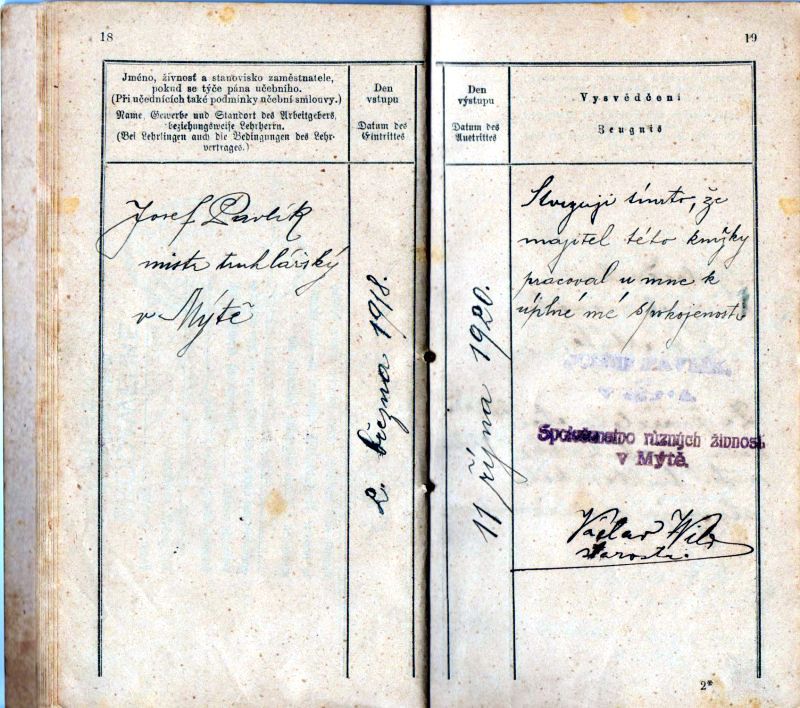 18
Jméno, živnosť a stanovisko zaměstnatele,
pokud se týče pána učebního.
(Při učednících také podmínky učební smlouvy.)
Name, Gewerbe und Standort des Arbeitgebers,
beziehungsweise Lehrherrn.
(Bei Lehrlingen auch die Bedingungen des Lehr-
vertrages.)
Den
vstupu
Datum des
Eintrittes
Josef Pavlík
mistr truhlářský
v Mýtě
2. března 1918.
19
Den
výstupu
Datum des
Austrittes
Vysvědčení
Zeugnis
11 října 1920.
Stvrzuji tímto, že
majitel této knížky
pracoval u mne k
úplné mé spokojenosti
Společenstvo různých živností
v Mýtě.
Václav
starosta.
2*